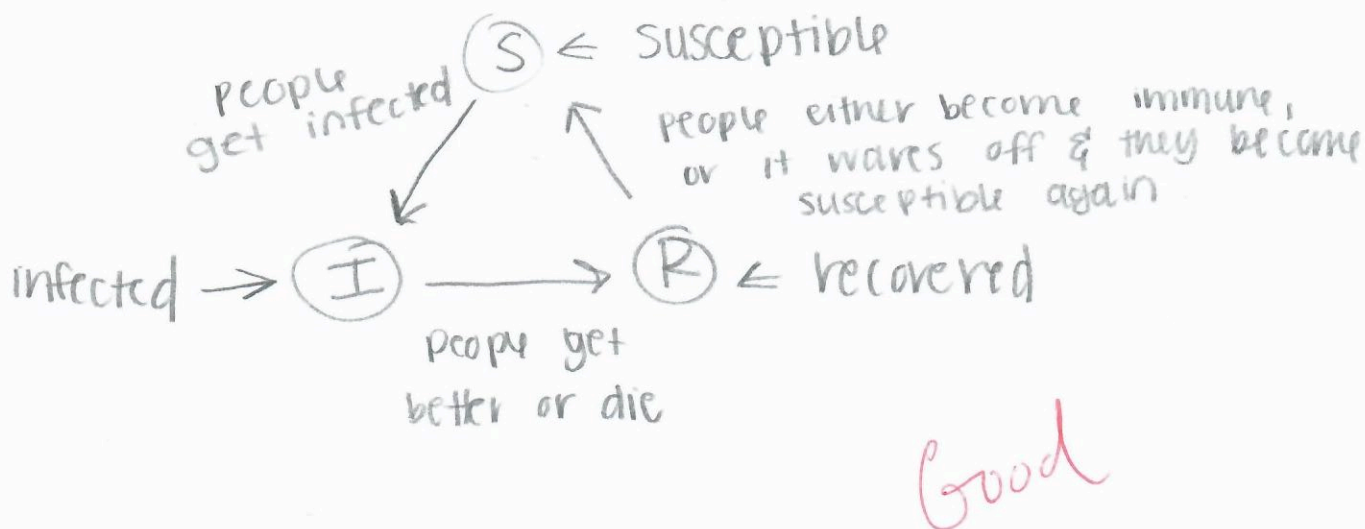 S ← susceptible
people
get infected
people either become immune,
or it waves off & they become
susceptible again
infected → I
R ← recovered
peopy get
better or die
Good